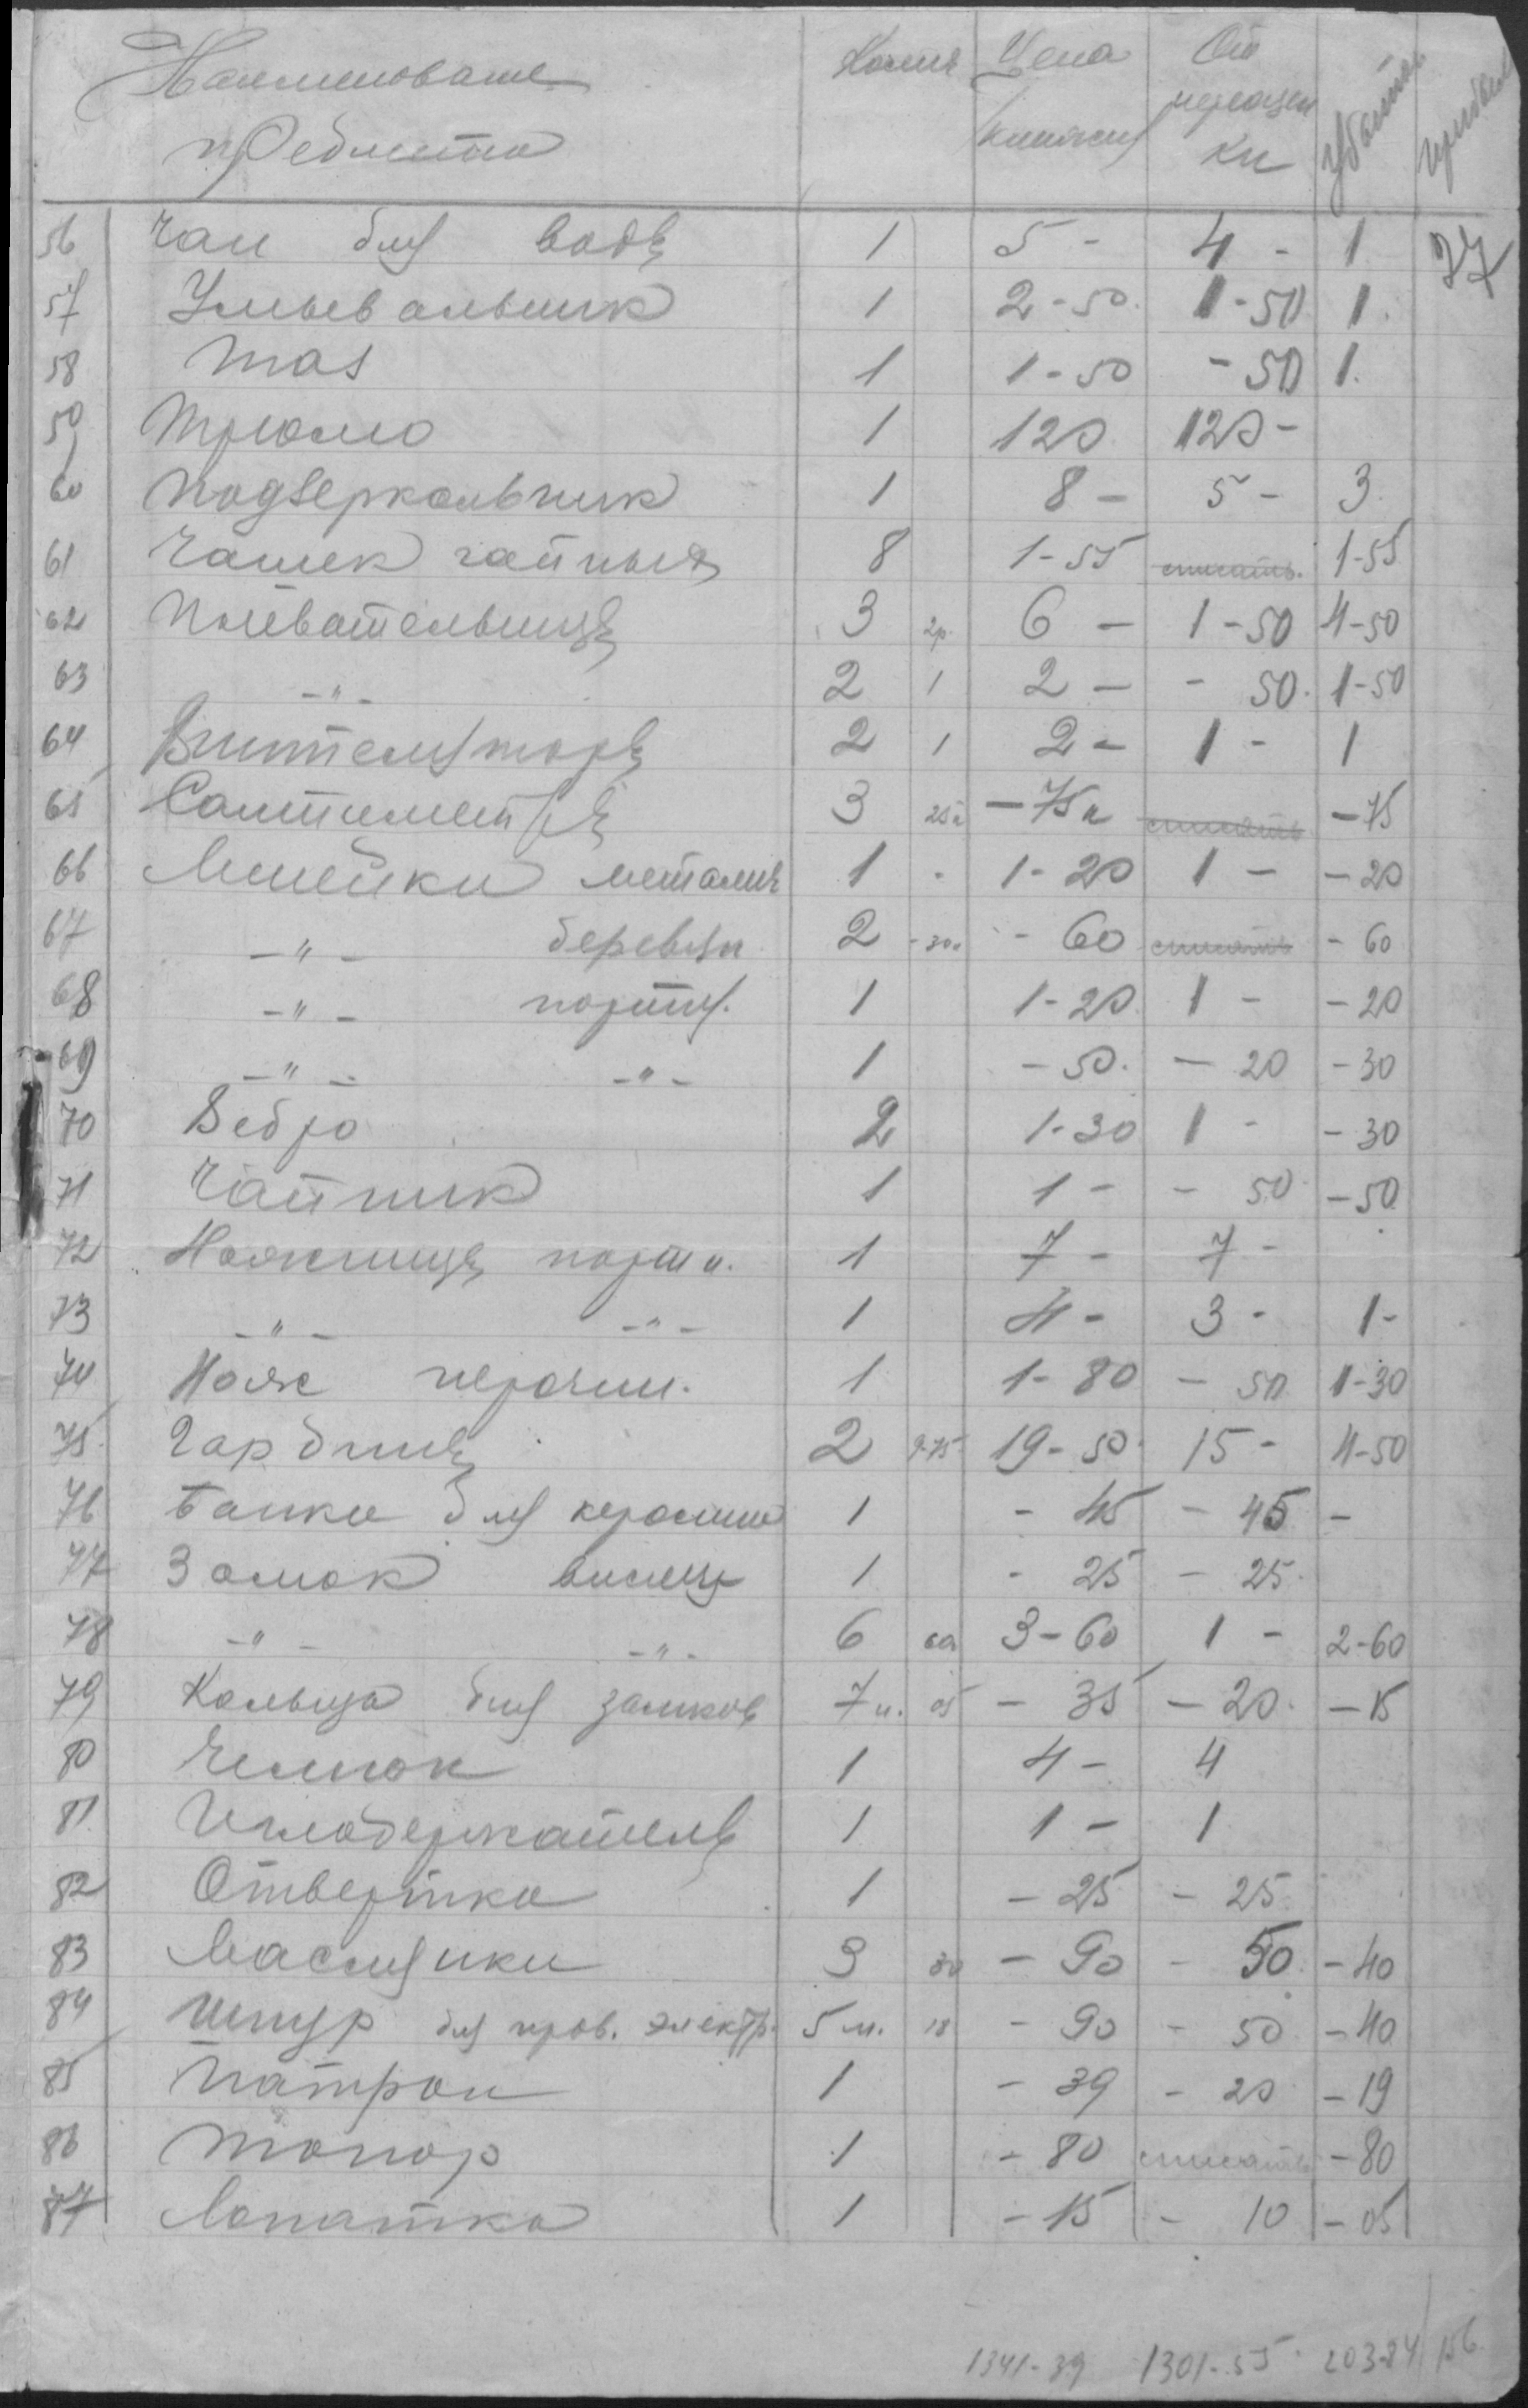 Наименование предмета Колич Цена книжн От переоцен ки Убыток прибыл
37
56 Чан для воды 1 5 - 4 - 1
57 Умывальник 1 2-50 1-50 1
58 Таз 1 1-50 -50 1
59 Трюмо 1 120 120 -
60 Подзеркальник 1 8 - 5 - 3
61 Чашек чайных 8 1-55 списать 1-55
62 Плевательницы 3 2р. 6 - 1-50 4-50
63 -"- 2 1 2 - - 50 1-50
64 Вентеляторы 2 1 2 - 1 - 1
65 Сантиметры 3 25к -75к списать -75
66 Линейки металич 1 - 1-20 1 - -20
67 -"- деревян 2 -30к - 60 списать - 60
68 -"- портн. 1 1-20 1 - -20
69 -"- -"- 1 -50. - 20 -30
70 Ведро 2 1-30 1 - -30
71 Чайник 1 1 - - 50 -50
72 Ножницы портн. 1 7 - 7 -
73 -"- -"- 1 4 - 3 - 1-
74 Нож перочин. 1 1-80 - 50 1-30
75 Гардины 2 9-75 19-50 15 - 4-50
76 Банка для керосина 1 - 45 - 45 -
77 Замок висящ 1 - 25 - 25
78 -"- -"- 6 60 3-60 1 - 2-60
79 Кольца для замков 7 п. 05 - 35 - 20 -15
80 Челнок 1 4 - 4
81 Иглодержатель 1 1 - 1
82 Отвертка 1 - 25 - 25
83 Маслянки 3 30 - 90 - 50 -40
84 Шнур для пров. электр. 5 м. 18 - 90 - 50 -40
85 Патрон 1 - 39 - 20 -19
86 Топор 1 - 80 списать -80
87 Лопатка 1 - 15 - 10 -05
1341-39 1301-55 203-84 156